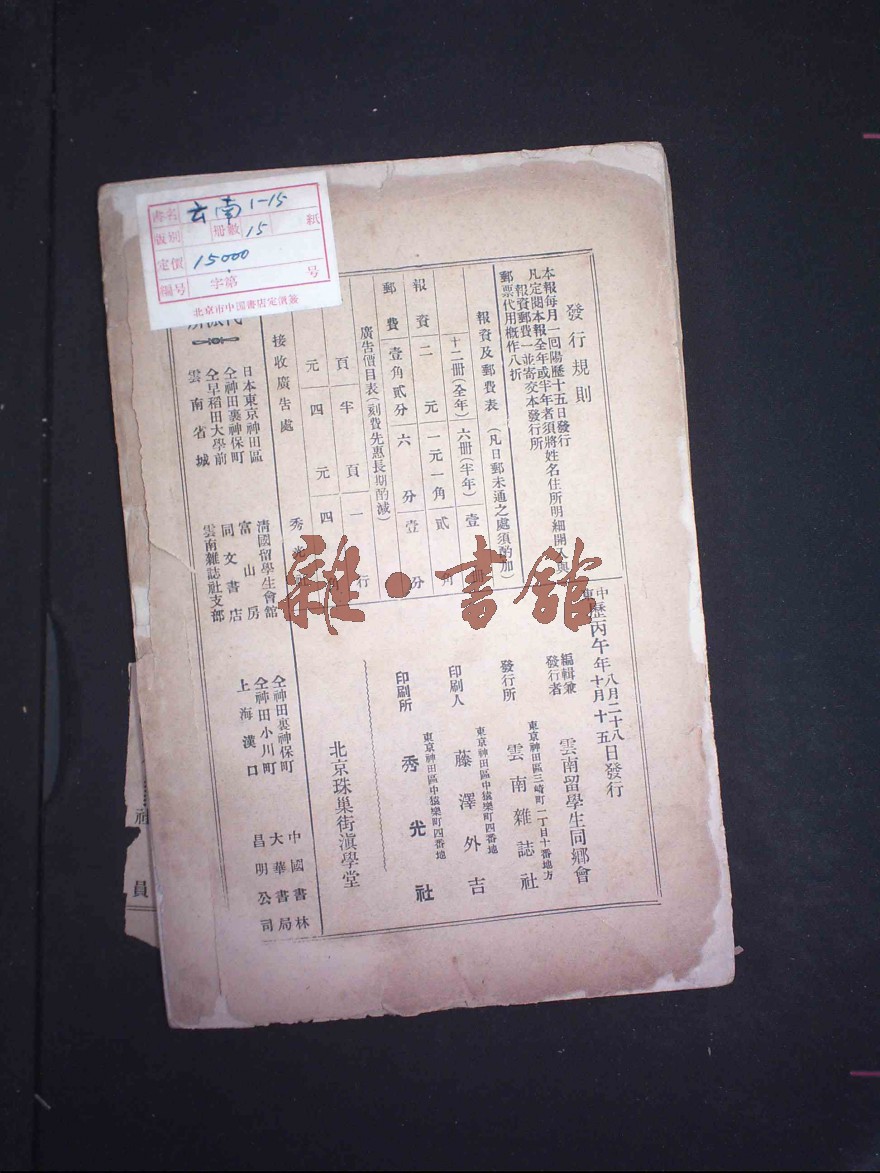 書名 云南 1-15 紙
版別 冊數 15
定價 15000
編号 字第 号
北京市中国書店定價簽
發行規則
本報每月一回陽歷十五日發行
凡定閱本報全年或半年者須將姓名住所明細開入與
報資郵費一並寄交本發行所
郵票代用概作八折
報資及郵費表(凡日郵未通之處須酌加)
十二冊(全年) 六冊(半年) 壹冊
報資 二元 一元一角 貳角
郵費 壹角貳分 六分 壹分
廣告價目表(刻費先惠長期酌減)
頁 半頁 一行
元 四元 四角
接收廣告處 秀光社
中東歷丙午年八月二十八日發行
年十月十五
編輯兼發行者 雲南留學生同鄉會
東京神田區三崎町一丁目十番地方
發行所 雲南雜誌社
東京神田區中猿樂町四番地
印刷人 藤澤外吉
東京神田區中猿樂町四番地
印刷所 秀光社
北京珠巢街滇學堂
日本東京神田區 清國留學生會館
仝神田裏神保町 富山房
仝早稻田大學前 同文書店
雲南省城 雲南雜誌社支部
仝神田裏神保町 中國書林
仝神田小川町 大華書局
上海漢口 昌明公司
社員
雜·書館